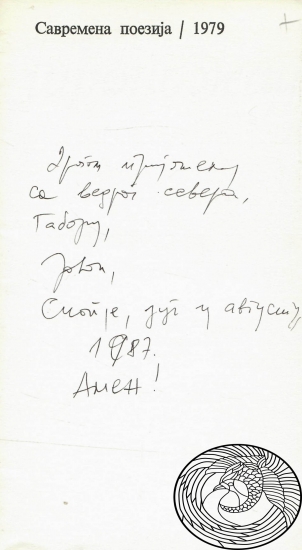 Савремена поезија / 1979
са ведрог севера,
Габору,
Јован,
Скопје, југ у августу,
1987.
Амен!